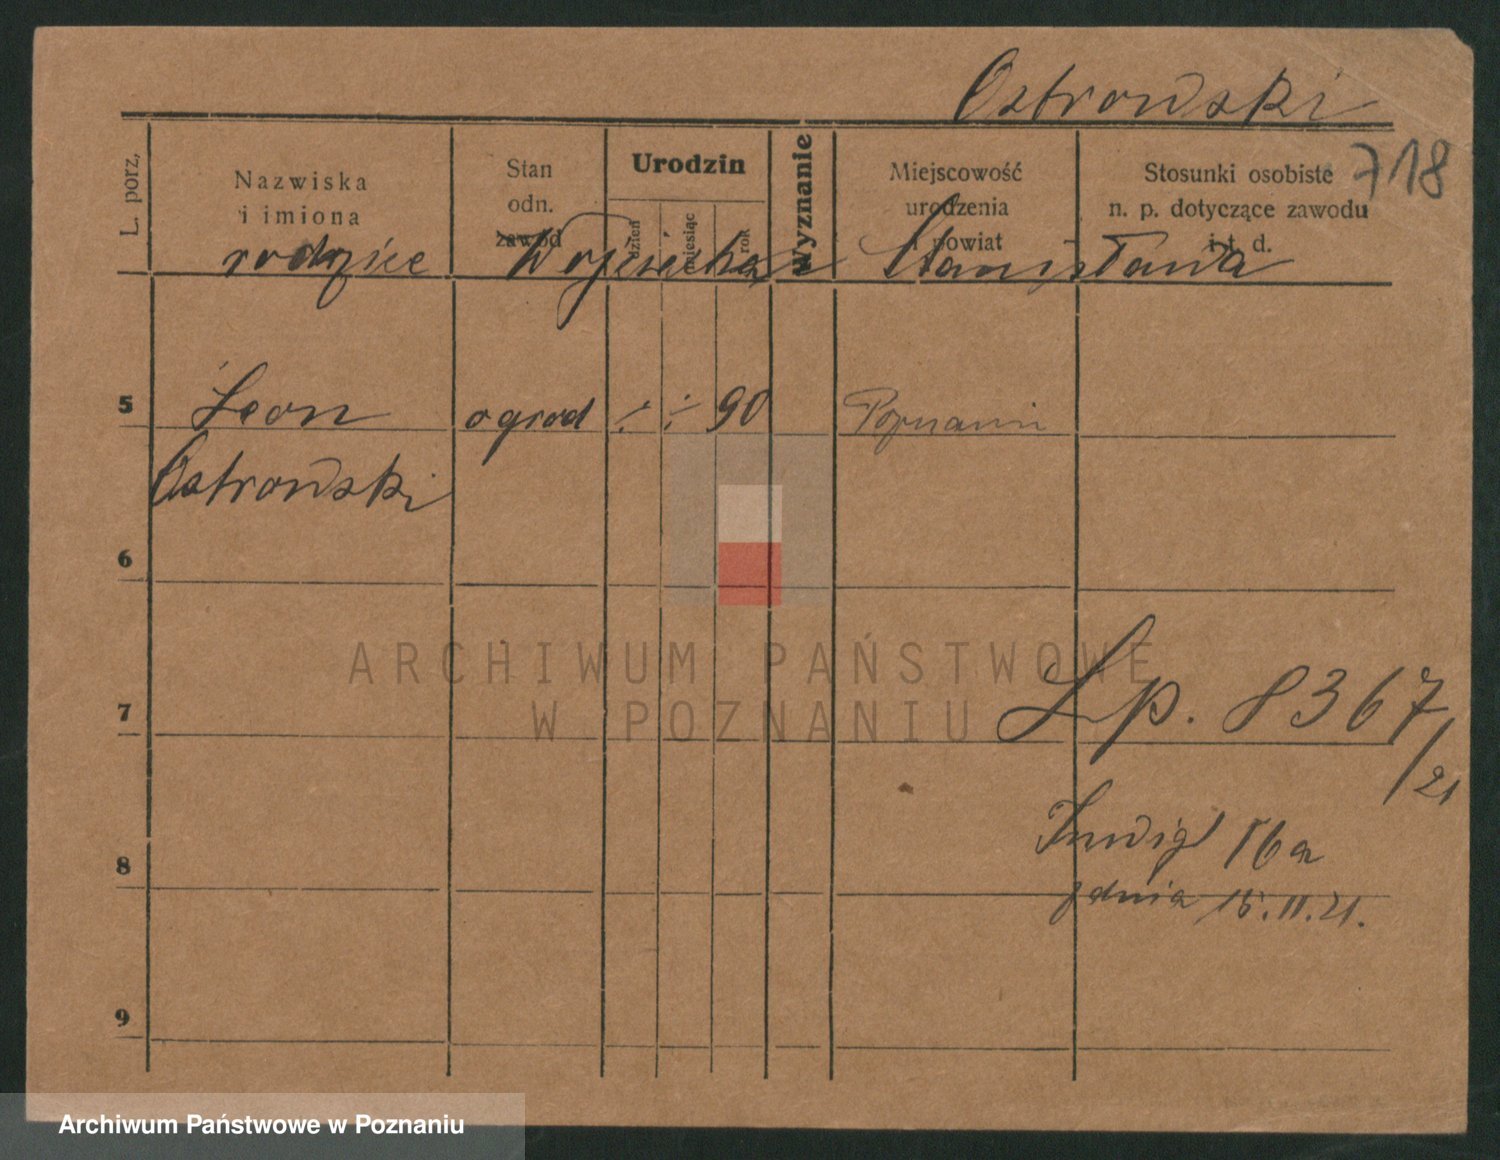 Ostrowski
718
L. porz.
Nazwiska
i imiona
Stan
odn.
zawód
Urodzin
dzień
miesiąc
rok
Wyznanie
Miejscowość
urodzenia
i powiat
Stosunki osobiste
n. p. dotyczące zawodu
i t. d.
rodzice Stanisława
5 Leon ogrod ÷ ÷ 90 Poznaniu
Ostrowski
6
ARCHIWUM PAŃSTWOWE
W POZNANIU
7 Lp. 8367/21
16a
8
z dnia 15.II.21.
9
Archiwum Państwowe w Poznaniu